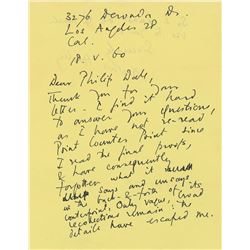 3276 Deronda Dr
Los Angeles 28
Cal.
18. V. 60
Dear Philip Dale,
Thank you for your
letter. I find it hard
to answer your questions,
as I have not re-read
Point Counter Point since
I read the final proofs,
& have consequently
forgotten what it
says and unsays
in the back-&-forth of its
counterpoint. Only vague, broad
recollections remain: the
details have escaped me.